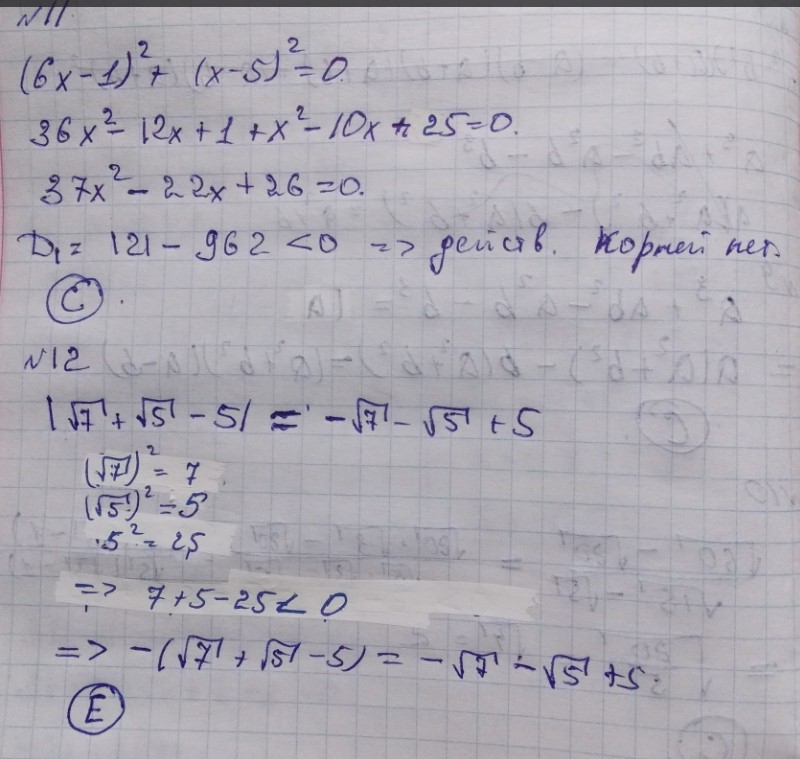 №11.
(6x-1)²+ (x-5)²=0.
36x²- 12x+1+x²-10x+25=0.
37x²-22x+26=0.
D₁= 121-962<0 => действ. корней нет.
C.
№12
|√7+√5-5| = -√7-√5+5
(√7)²=7
(√5)²=5
5²=25
=> 7+5-25<0
=> -(√7+√5-5)=-√7-√5+5.
E